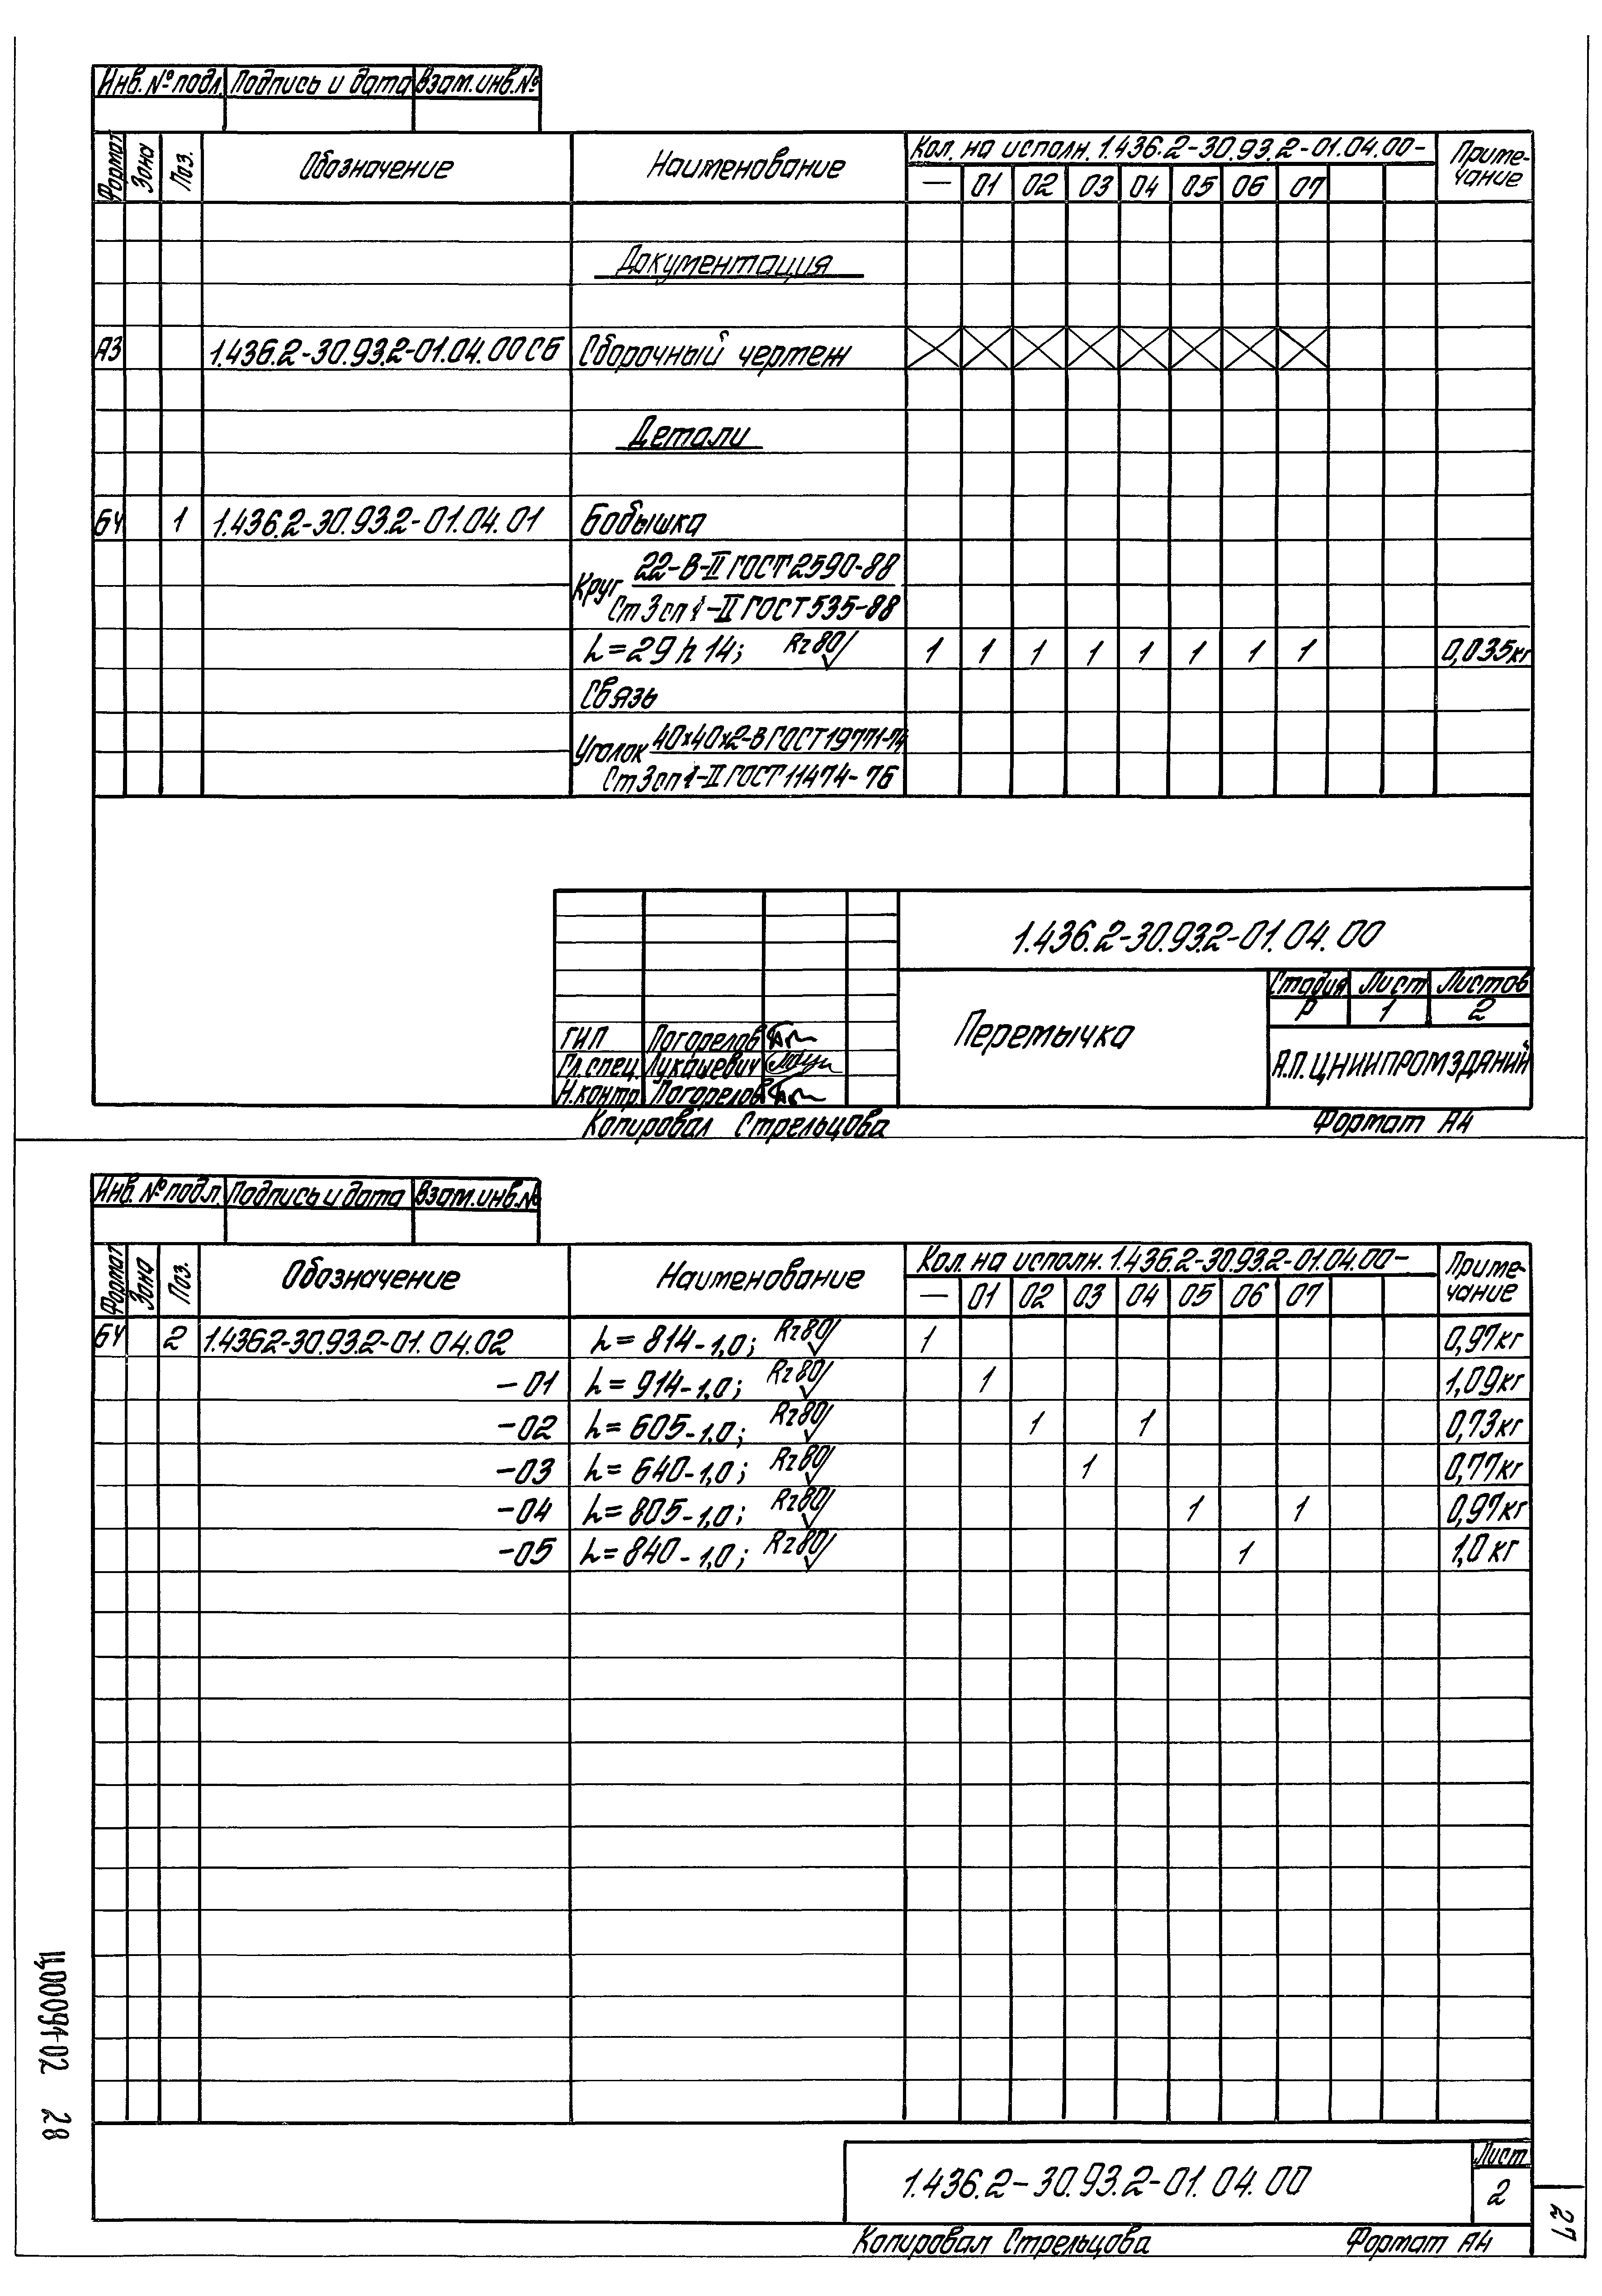 Инв. № подл. Подпись и дата Взам. инв. №
Формат Зона Поз. Обозначение Наименование Кол. на исполн. 1.436.2-30.93.2-01.04.00- Приме-чание
— 01 02 03 04 05 06 07
Документация
А3 1.436.2-30.93.2-01.04.00СБ Сборочный чертеж
Детали
БЧ 1 1.436.2-30.93.2-01.04.01 Бобышка
Круг 22-В-II ГОСТ 2590-88
Ст3сп1-II ГОСТ 535-88
L=29 h 14; Rz80 1 1 1 1 1 1 1 1 0,035кг
Связь
Уголок 40х40х2-В ГОСТ 19771-74
Ст3сп1-II ГОСТ 11474-76
1.436.2-30.93.2-01.04.00
Перемычка
Стадия Лист Листов
Р 1 2
А.П. ЦНИИПРОМЗДАНИЙ
ГИП Погорелов
Гл. спец. Лукашевич
Н.контр. Погорелов
Копировал Стрельцова Формат А4
Инв. № подл. Подпись и дата Взам. инв. №
Формат Зона Поз. Обозначение Наименование Кол. на исполн. 1.436.2-30.93.2-01.04.00- Приме-чание
— 01 02 03 04 05 06 07
БЧ 2 1.436.2-30.93.2-01.04.02 L=814-1,0; Rz80 1 0,97кг
-01 L=914-1,0; Rz80 1 1,09кг
-02 L=605-1,0; Rz80 1 1 0,73кг
-03 L=640-1,0; Rz80 1 0,77кг
-04 L=805-1,0; Rz80 1 1 0,97кг
-05 L=840-1,0; Rz80 1 1,0кг
1.436.2-30.93.2-01.04.00
Лист
2
Копировал Стрельцова Формат А4
Ц00091-02 28
27